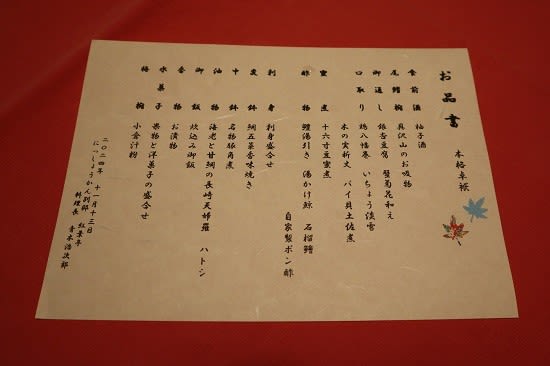 お品書
本格卓袱
食前酒 柚子酒
尾鰭椀 具沢山のお吸物
御通し 銀杏豆腐 蟹菊花和え
口取り 鶏八幡巻 いちょう淡雪
木の実新丈 バイ貝土佐煮
蜜煮 十六寸豆蜜煮
酢物 鱧湯引き 湯かけ鯨 石榴鱠
自家製ポン酢
刺身 刺身盛合せ
炙鉢 鯛五菜香味焼き
中鉢 名物豚角煮
油物 海老と甘鯛の長崎天婦羅 ハトシ
御飯 炊込み御飯
香物 お漬物
水菓子 果物と洋菓子の盛合せ
梅椀 小倉汁粉
二〇二四年 十一月十三日
にっしょうかん別邸 紅葉亭
料理長 青木浩次郎